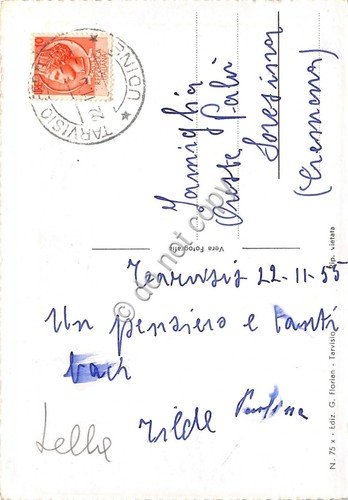 TARVISIO
UDINE
Famiglia
Oreste Palù
Soresina
(Cremona)
Vera Fotografia
Tarvisio 22-11-55
Un pensiero e tanti
baci
Tilde
N. 75 x - Ediz. G. Florian - Tarvisio
Rip. vietata